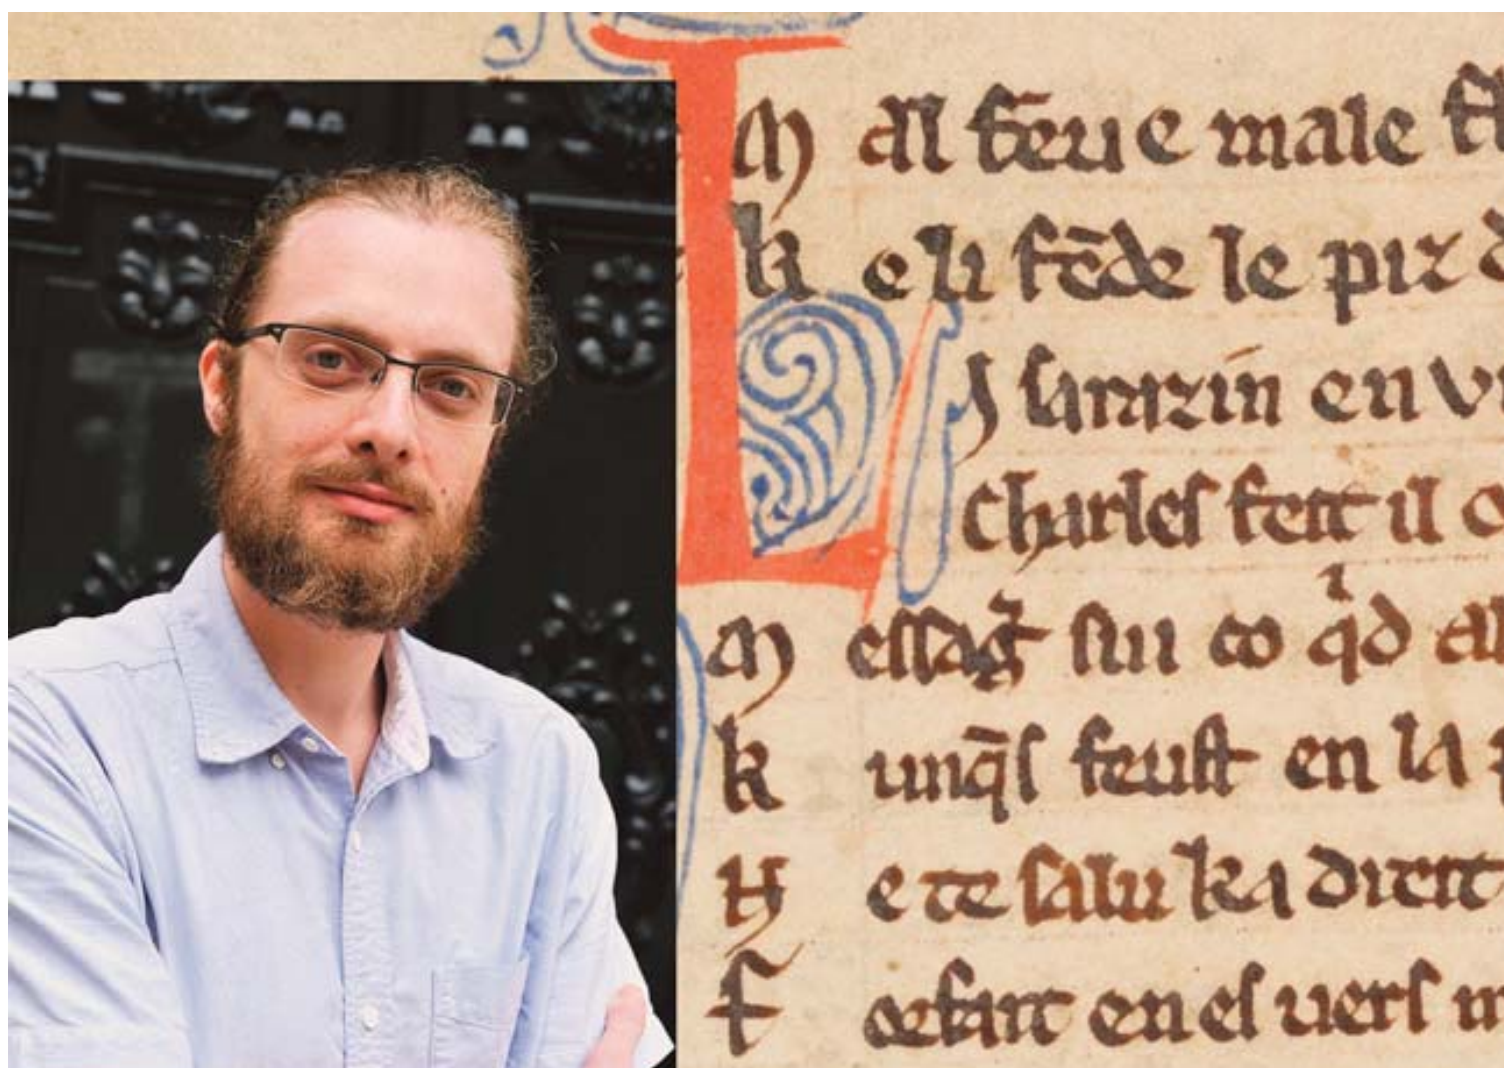 M al feu e male
k e li fēde le piz
L J sarazin en
Charles feit il
M essag̃ sui co qͥd
k unq̄s feust en la
N e te salu ka dreit
f orfait en es uers